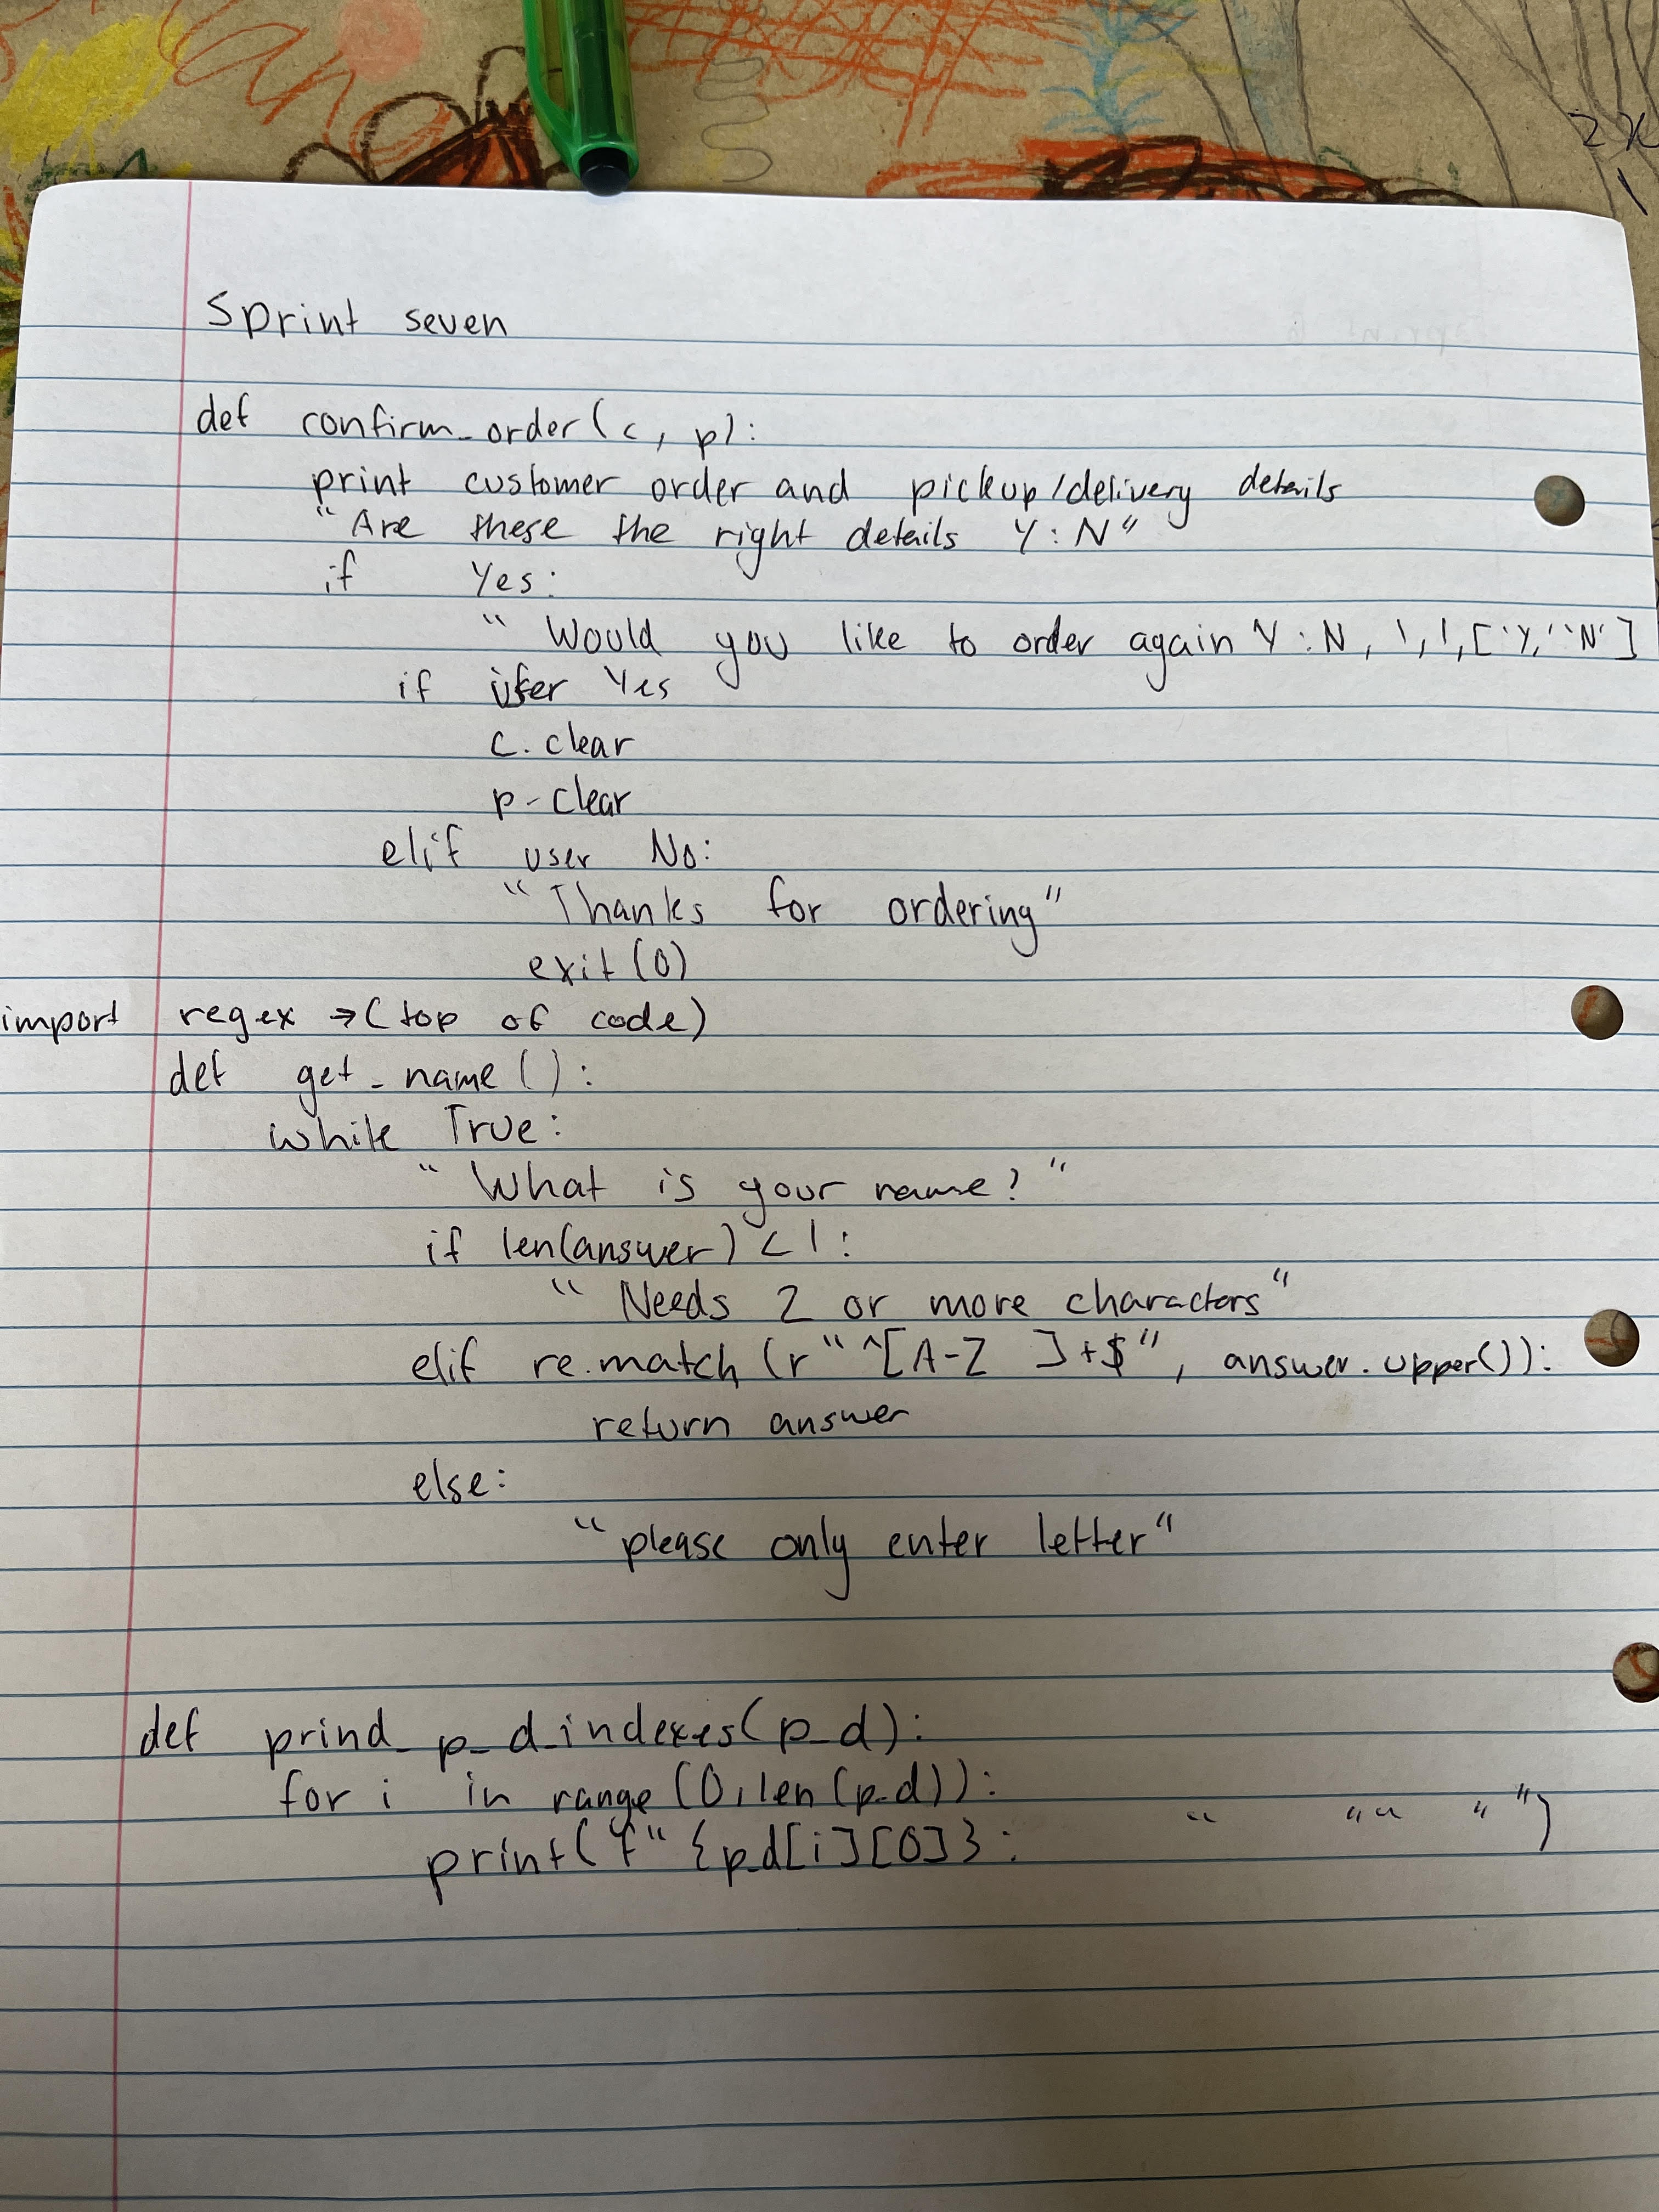 Sprint seven
def confirm_order(c, p):
print customer order and pickup/delivery details
"Are these the right details Y:N"
if Yes:
" Would you like to order again Y:N, 1,1,['Y,' 'N']
if user Yes
c.clear
p-clear
elif user No:
"Thanks for ordering"
exit(0)
import regex →(top of code)
def get_name():
while True:
" What is your name? "
if len(answer) < 1:
" Needs 2 or more characters"
elif re.match(r"^[A-Z ]+$", answer.upper()):
return answer
else:
"please only enter letter"
def prind_p_d_indexes(p_d):
for i in range(0,len(p_d)):
print(f"{p_d[i][0]}: " "" " ")
2x
1